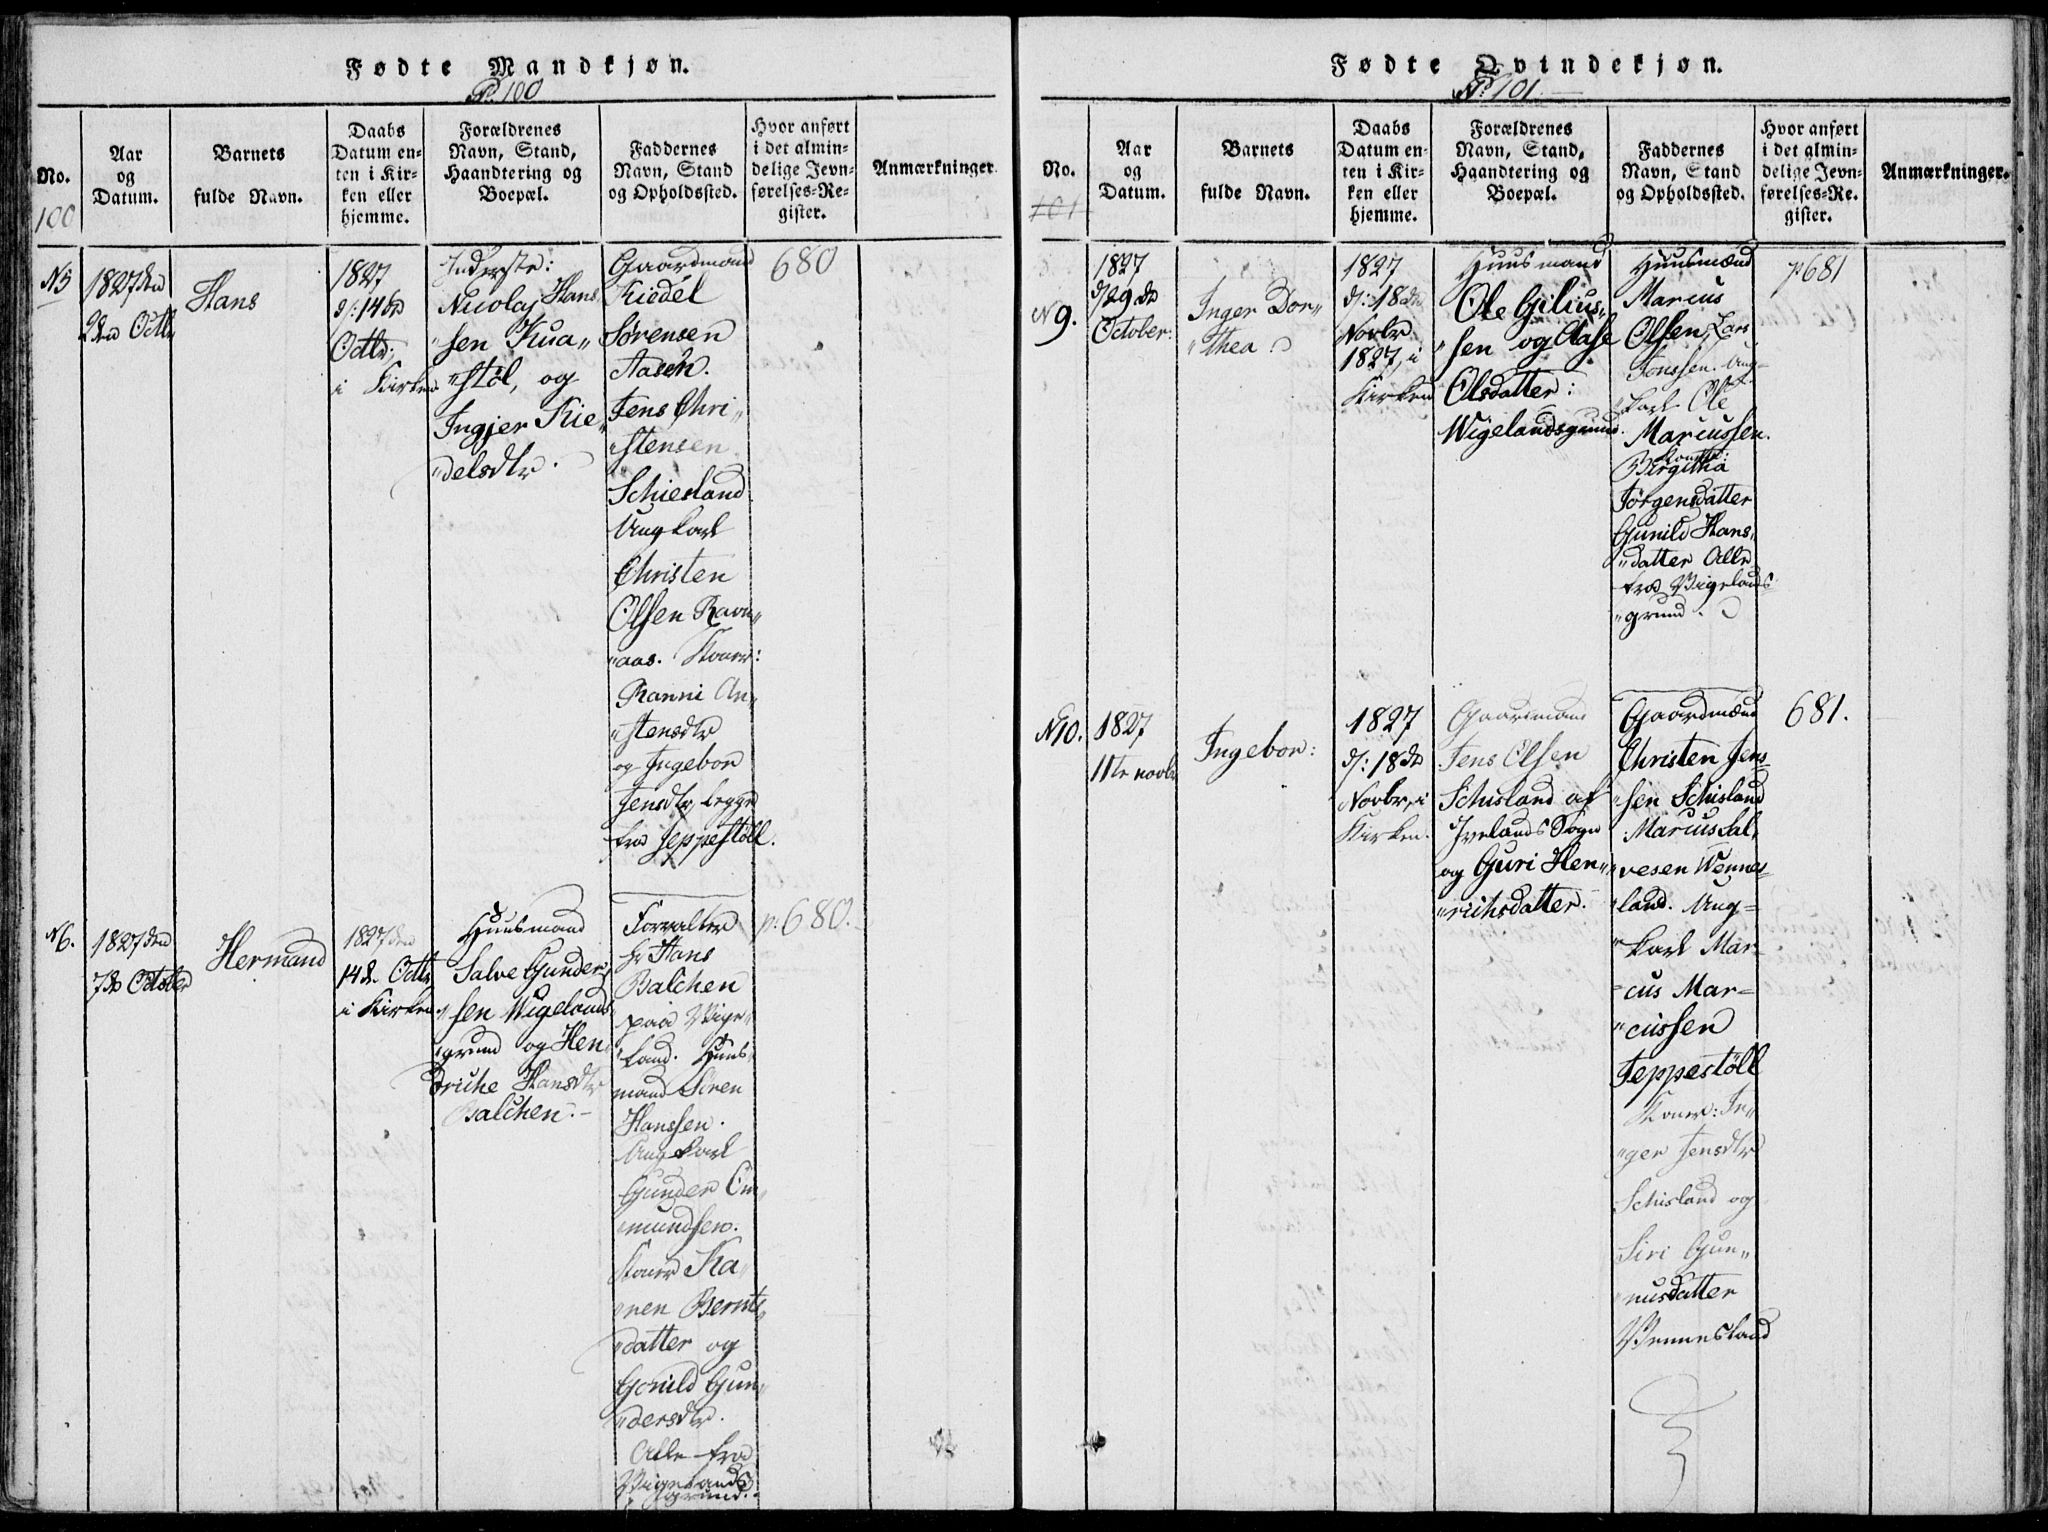 Fødte Mandkjøn.
P. 100
No.
100
Aar
og
Datum.
Barnets
fulde Navn.
Daabs
Datum en-
ten i Kir-
ken eller
hjemme.
Forældrenes
Navn, Stand,
Haandtering og
Boepæl.
Faddernes
Navn, Stand
og Opholdssted.
Hvor anført
i det almin-
delige Jevn-
førelses-Re-
gister.
Anmærkninger
N5
1827 den
2den Octbr
Hans
1827
d: 14de
Octbr:
i Kirken
Inderste:
Nicolaj Hans
"sen Kua"
"støl, og
Ingjer Kie"
"delsdtr.
Gaardmænd
Kiedel
Sørensen
Aasen.
Jens Chri"
"stensen
Schiesland
Ungkarl
Christen
Olsen Ravn"
"aas. Koner:
Ranni An"
"stensdtr
og Ingebor
Jensdtr begge
fra Jeppestøll.
680
N6.
1827 den
7de October
Hermand
1827 den
14de Octbr
i Kirken
Huusmand
Salve Gunder"
"sen Wigelands"
"grund og Hen"
driche Hansdtr
Balchen.
Forvalter
Hr Hans
Balchen
paa Vige"
"land. Huus"
mand Søren
Hanssen.
Ungkarl
Gunder Om"
"mundsen.
Koner Ka"
"ren Bernts"
"datter og
Gonild Gun"
"dersdtr.
Alle fra
Vigelands
grund.
p: 680.
Fødte Qvindekjøn.
P. 101
No.
101
Aar
og
Datum.
Barnets
fulde Navn.
Daabs
Datum en-
ten i Kir-
ken eller
hjemme.
Forældrenes
Navn, Stand,
Haandtering og
Boepæl.
Faddernes
Navn, Stand
og Opholdssted.
Hvor anført
i det almin-
delige Jevn-
førelses-Re-
gister.
Anmærkninger.
N9.
1827
d/29de
October.
Inger Dor"
"thea
1827
d: 18de
Novbr
1827, i
Kirken
Huusmand
Ole Gilius"
"sen og Aase
Olsdatter:
Wigelandsgrund
Huusmænd
Marcus
Olsen, Lars
Jonssen. Ung-
"karl Ole
Marcussen.
Koner:
Birgitha
Jörgensdatter
Gunild Hans"
"datter Alle
fra Vigelands
"grund.
p681
N10.
1827
11te novbr
Ingebor:
1827
d: 18de
Novbr, i
Kirken.
Gaardmand
Jens Olsen
Schisland af
Ivelands Sogn
og Guri Hen"
"richsdatter.
Gaardmænd
Christen Jens-
"sen Schisland
Marcus Sal"
"vesen Wennes-
"land. Ung=
"karl Mar=
"cus Mar=
"cussen
Jeppestöll
Koner: In"
"ger Jensdtr
Schisland og
Siri Gun"
"nusdatter
Vennesland
681.